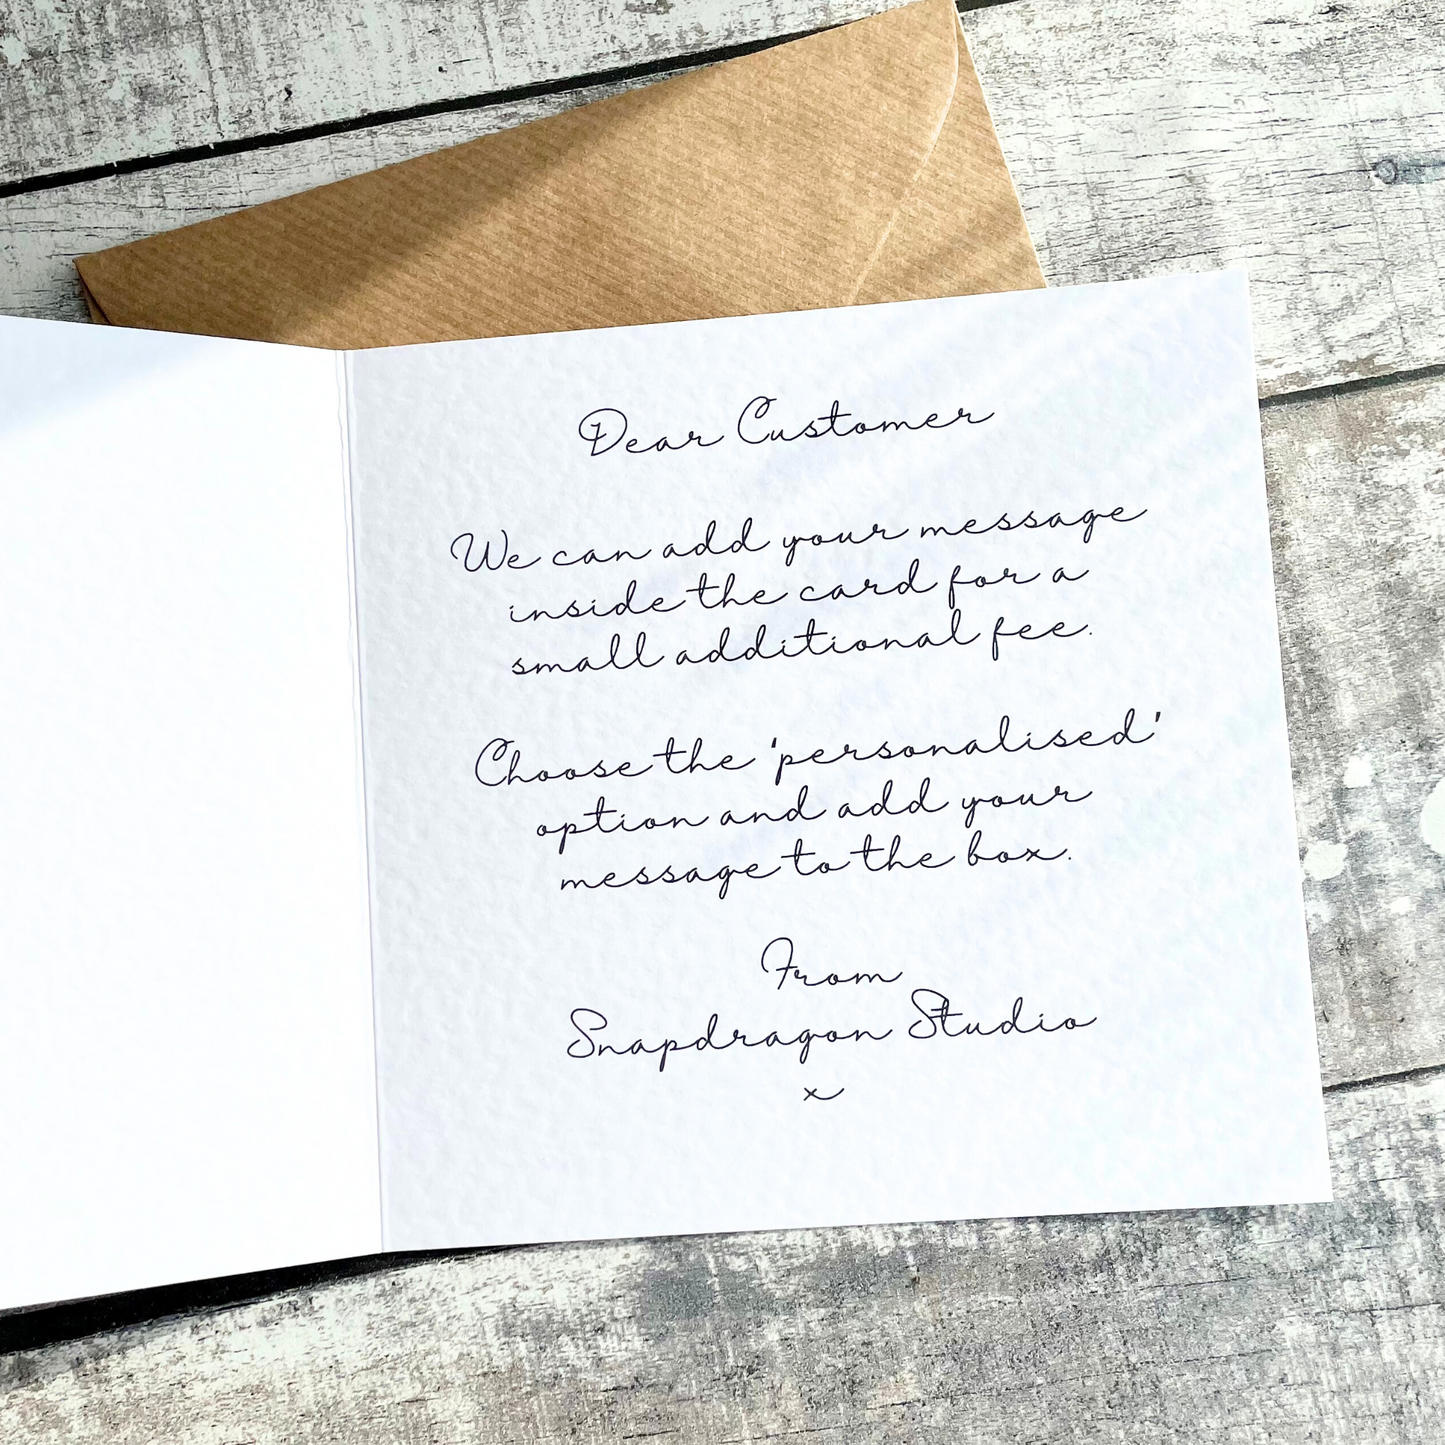 Dear Customer
We can add your message
inside the card for a
small additional fee.
Choose the 'personalised'
option and add your
message to the box.
From
Snapdragon Studio
x